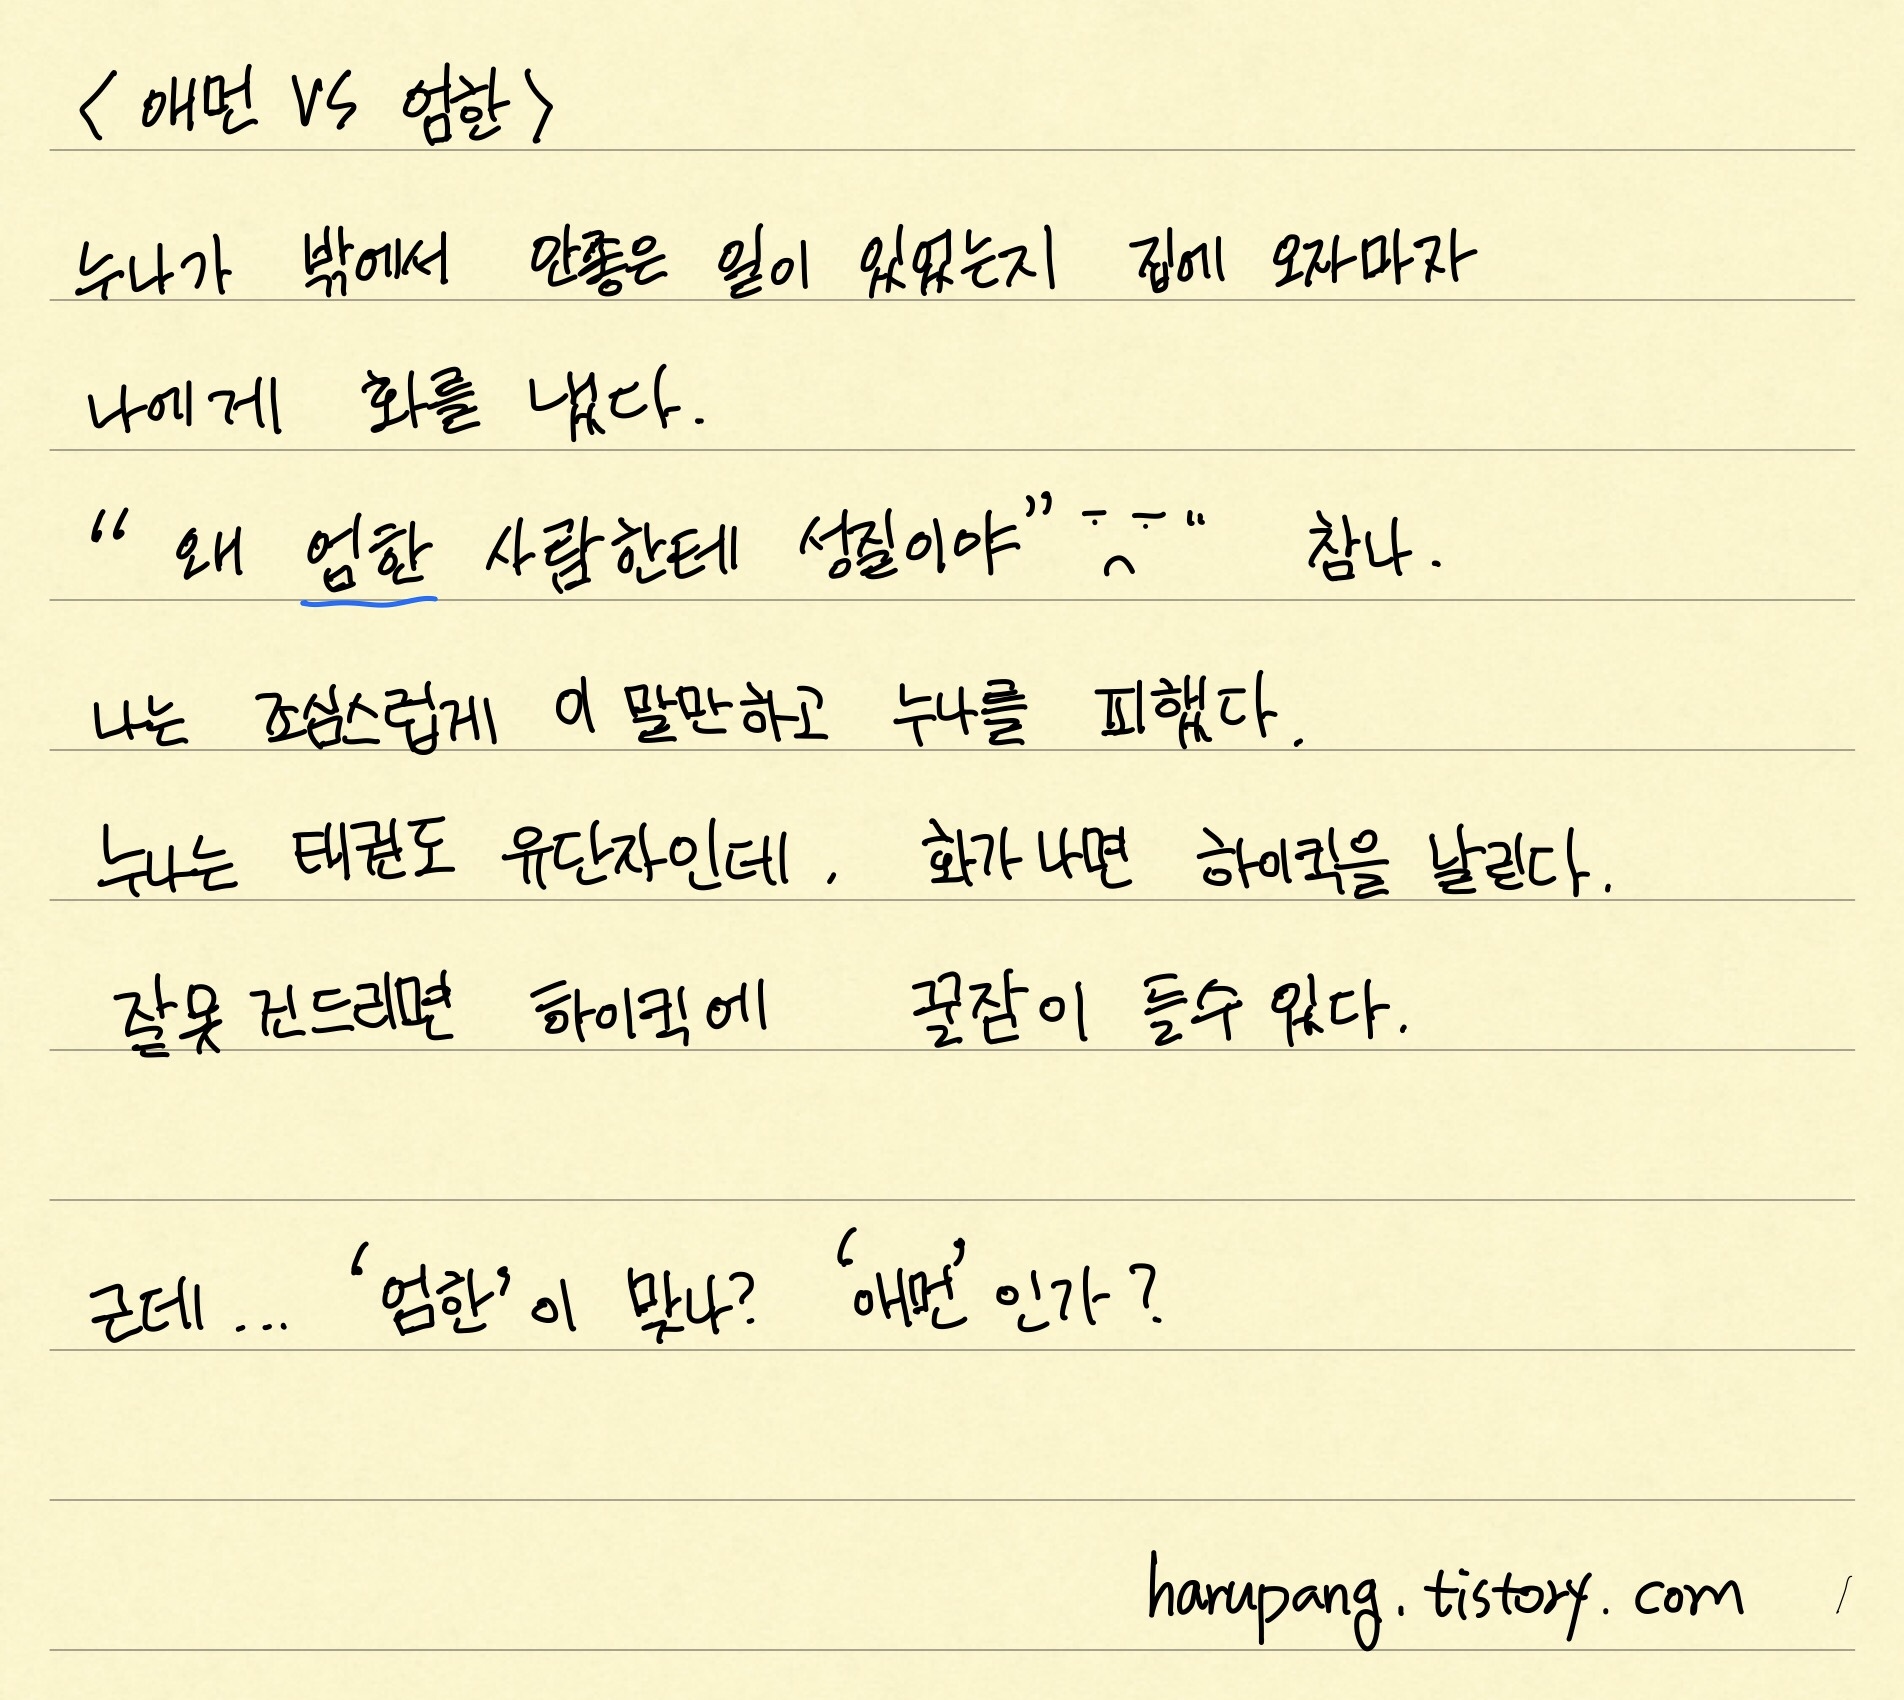 <애먼 VS 엄한>
누나가 밖에서 안좋은 일이 있었는지 집에 오자마자
나에게 화를 냈다.
“왜 엄한 사람한테 성질이야” 참나.
나는 조심스럽게 이 말만하고 누나를 피했다.
누나는 태권도 유단자인데, 화가 나면 하이킥을 날린다.
잘못 건드리면 하이킥에 꿀잠이 들수 있다.
근데... ‘엄한’이 맞나? ‘애먼’인가?
harupang.tistory.com